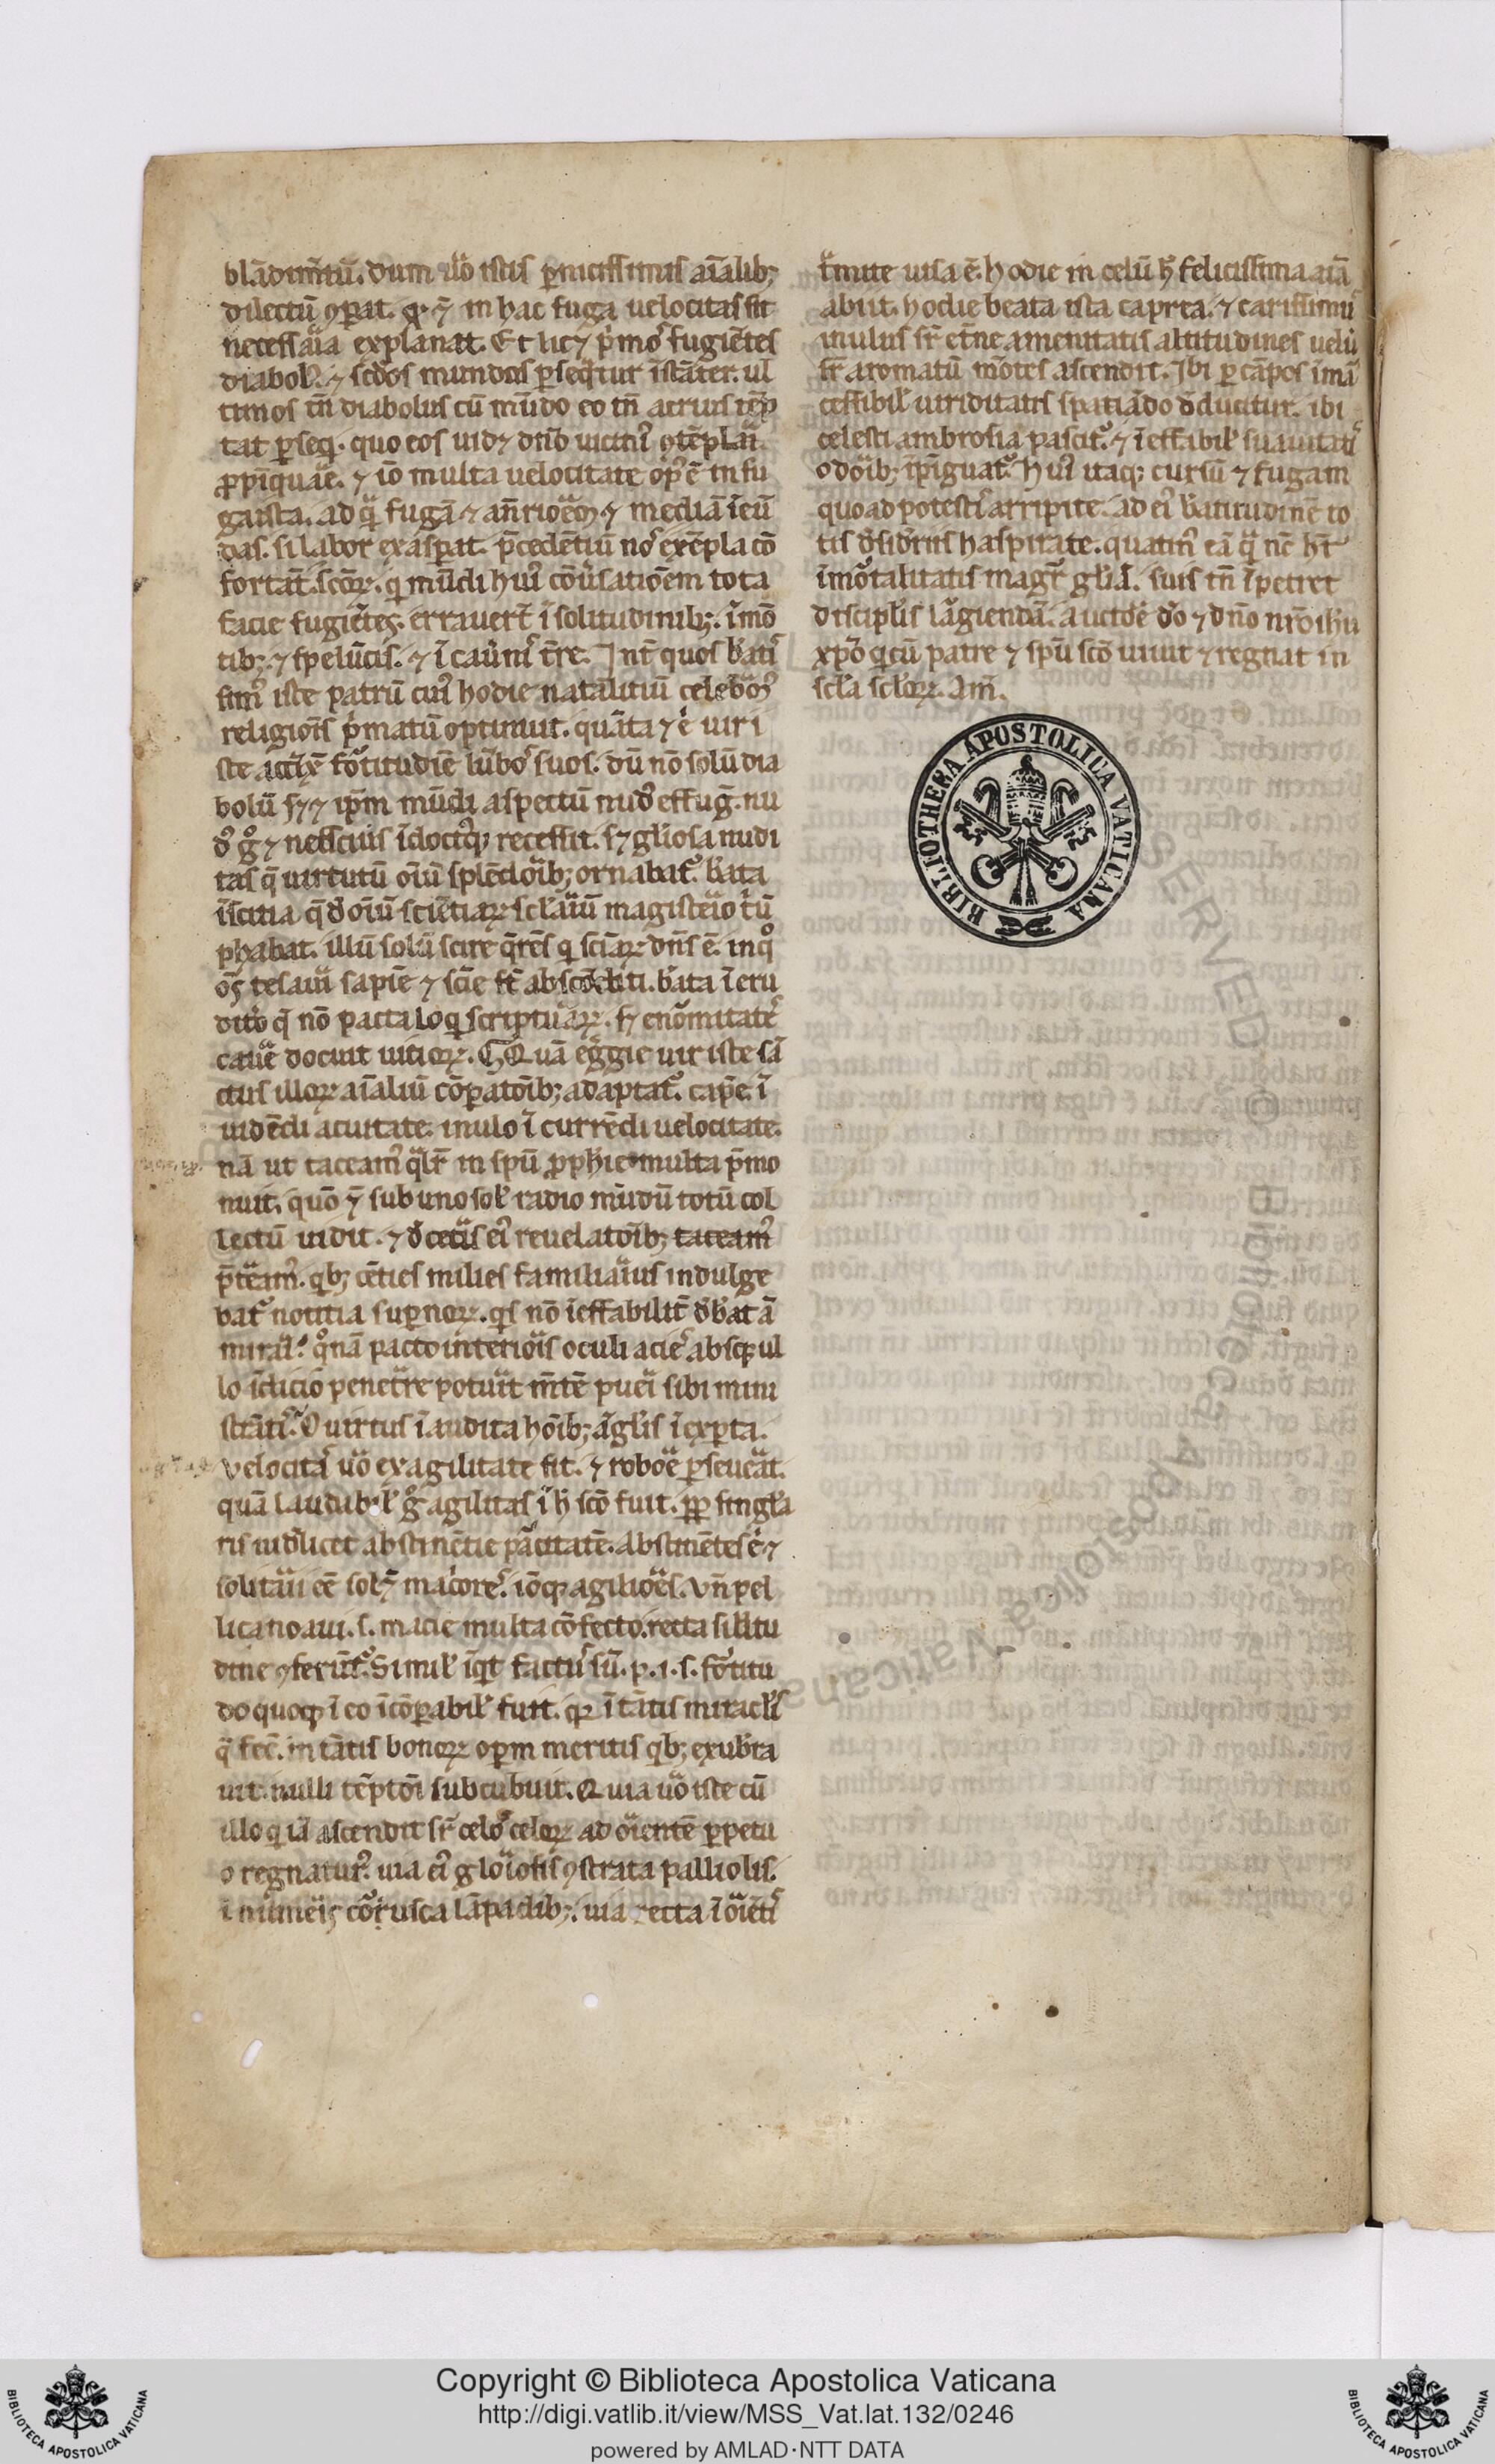 blādimtū. dum ůo istis pniciſſimis aīalib;
dilectū ꝯpat. qꝛ ⁊ in hac fuga uelocitas ſit
neceſſaͣia explanat. Et licꝫ pͥmoˢ fugiētes
diabol᷒. ⁊ scd̄os mundus ꝑseqͣtur īstāter. ul
timos tn̄ diabolus cū mūdo eo tn̄ atrius tēp
tat ꝑseq̇. quo eos uidꝫ
ꝓpīquare. ⁊ iō multa uelocitate opꝰ ē in fu
ga ista. ad qͣ fugā
das. si labor exaſpat. p̄cedētiū noˢ exēpla cō
fortāt. sc̄oꝝ. q̇ mūdi huiꝰ cōuͥsatiōem tota
facie fugiētes. errauer̄t ī solitudinib;. ī mō
tib;. ⁊ ſpelūcis. ⁊ ī cauͥniˢ t̄re. Int̄ quos b̄ati
ſimꝰ iste patrū cuiꝰ hodie natalitiū celebͣmꝰ
religiōis pͥmatū optinuit. quāta ⁊ē uir i
ste fōtitudīe lūboˢ suos. dū nō solū dia
bolū sꝫ ⁊ ip̄m mūdi aspectū nudꝰ effuḡ. nu
dꝰ gͦ ⁊ neſſcius īdoctꝰqꝫ receſſit. sꝫ gl̄iosa nudi
tas q̄ uirtutū oīū splēdoͣib; ornabat᷑. b̄ata
īscitia q̄ ꝺ oīū sciētiaꝝ sc̄laͣiū magisteͣio
ꝓhabat. illū solū scire qͣrēs q̇ sciāꝝ dn̄s ē. in qͦ
oēˢ tesauͣi sapīe ⁊ scīe st̄ abscōditi. b̄ata īeru
ditͦo q̄ nō pacta loq̇ scriptuͣaꝝ. sꝫ enōmitateˢ
cauͤe docuit uitioꝝ. Quā egͣgie uir iste sā
ctus illoꝝ aīaliū cōꝑatoīb; adaptat᷑. cap̄e ī
uidēdi acuitate. inulo ī currēdi uelocitate.
nā ut taceamꝰ qͣlr̄ in spū ꝓph̄ie multa p̄mo
nuit. quō ⁊ sub uno sol᷒ radio mūdū totū col
lectū uidit. ⁊ ꝺ ceteͣis eiꝰ reuelatoīb; taceamꝰ
p̄teͣamꝰ. qͥb; cēties milies familiaͣius indulge
bat᷑ notitia suꝑnoꝝ. q̇s nō īeffabilit̄ ꝺb̄at ā
mirari. qͦnā pacto interioͣis oculi acieˢ absqꝫ ul
lo īdicio penetͣre potuͣit mt̄ē pueͣi sibi mini
strātiˢ. O uirtus ī audita hoīb; āgl̄is īexꝑta.
velocitaˢ ůo ex agilitate ſit. ⁊ roboͣe ꝑseueͣat.
quā laudabil᷒ gͦ agilitas ī hͦ sc̄o fuit. ꝓp̄ſingl̄a
ris uidꝫlicet abstinētie pͣcitatē. Abstinētes ē ⁊
solitaͣii eē solꝫ ⁊ macͥoreˢ. iōqꝫ agilioͣes. Vn̄ pel
licano aui. s. macie multa cōfecto. recta sil̄itu
dine ꝯferūt᷑. Simil᷒ īqͥt factuˢ sū. p. i. s. fōtitu
do quoqꝫ ī eo īcōꝑabil᷒ fuit. qꝛ ī tātis miracl̄is
q̄ fec̄. in tātis bonoꝝ oꝑm meritis qͥb; exub̄ra
uit. nulli tēptōi subcubuit. Quia ůo iste cū
illo q̇ iā ascendit sr̄ celoˢ celoꝝ ad oͣientē ꝑpetu
o regnaturꝰ. uia eiꝰ gloͣiosis ꝯstrata palliolis.
ī nūmeͣis coͣrusca lāpadib;. uia recta ī oͣiētiˢ
tͣmite uisa ē. hodie in celū hͨ felicissima aīā
abiit. hodie beata ista caprea. ⁊ carissimuˢ
inulus sr̄ et̄ne amenitatis altitudines uelū
sr̄ aromatū mōtes ascendit. Ibi ꝑ cāpos īmā
cessibil᷒ uiriditatis spatiādo ꝺducitur. ibi
celesti ambrosia pascit᷑. ⁊ īeffabil᷒ suauitatiˢ
odoͣib; īpīguat᷑. Huiꝰ itaqꝫ cursū ⁊ fugam
quoad potestiˢ arripite. ad eiꝰ b̄atitudinē to
tis ꝺsidͥiis haspirate. quatinꝰ eā q̄ nc̄ h̄t
īmoͣtalitatis magr̄ gl̄iā. suis tn̄ īpetret
discipl̄is laͣgiendā. auctoͣe dͦo ⁊ dn̄o nr̄o ihū
xp̄o q̇ cū patre ⁊ spū sc̄o uiuit ⁊ regnat in
sc̄la sc̄loꝝ. Am̄.
BIBLIOTHECA APOSTOLICA VATICANA
Copyright © Biblioteca Apostolica Vaticana
http://digi.vatlib.it/view/MSS_Vat.lat.132/0246
powered by AMLAD·NTT DATA
BIBLIOTECA APOSTOLICA VATICANA
BIBLIOTECA APOSTOLICA VATICANA